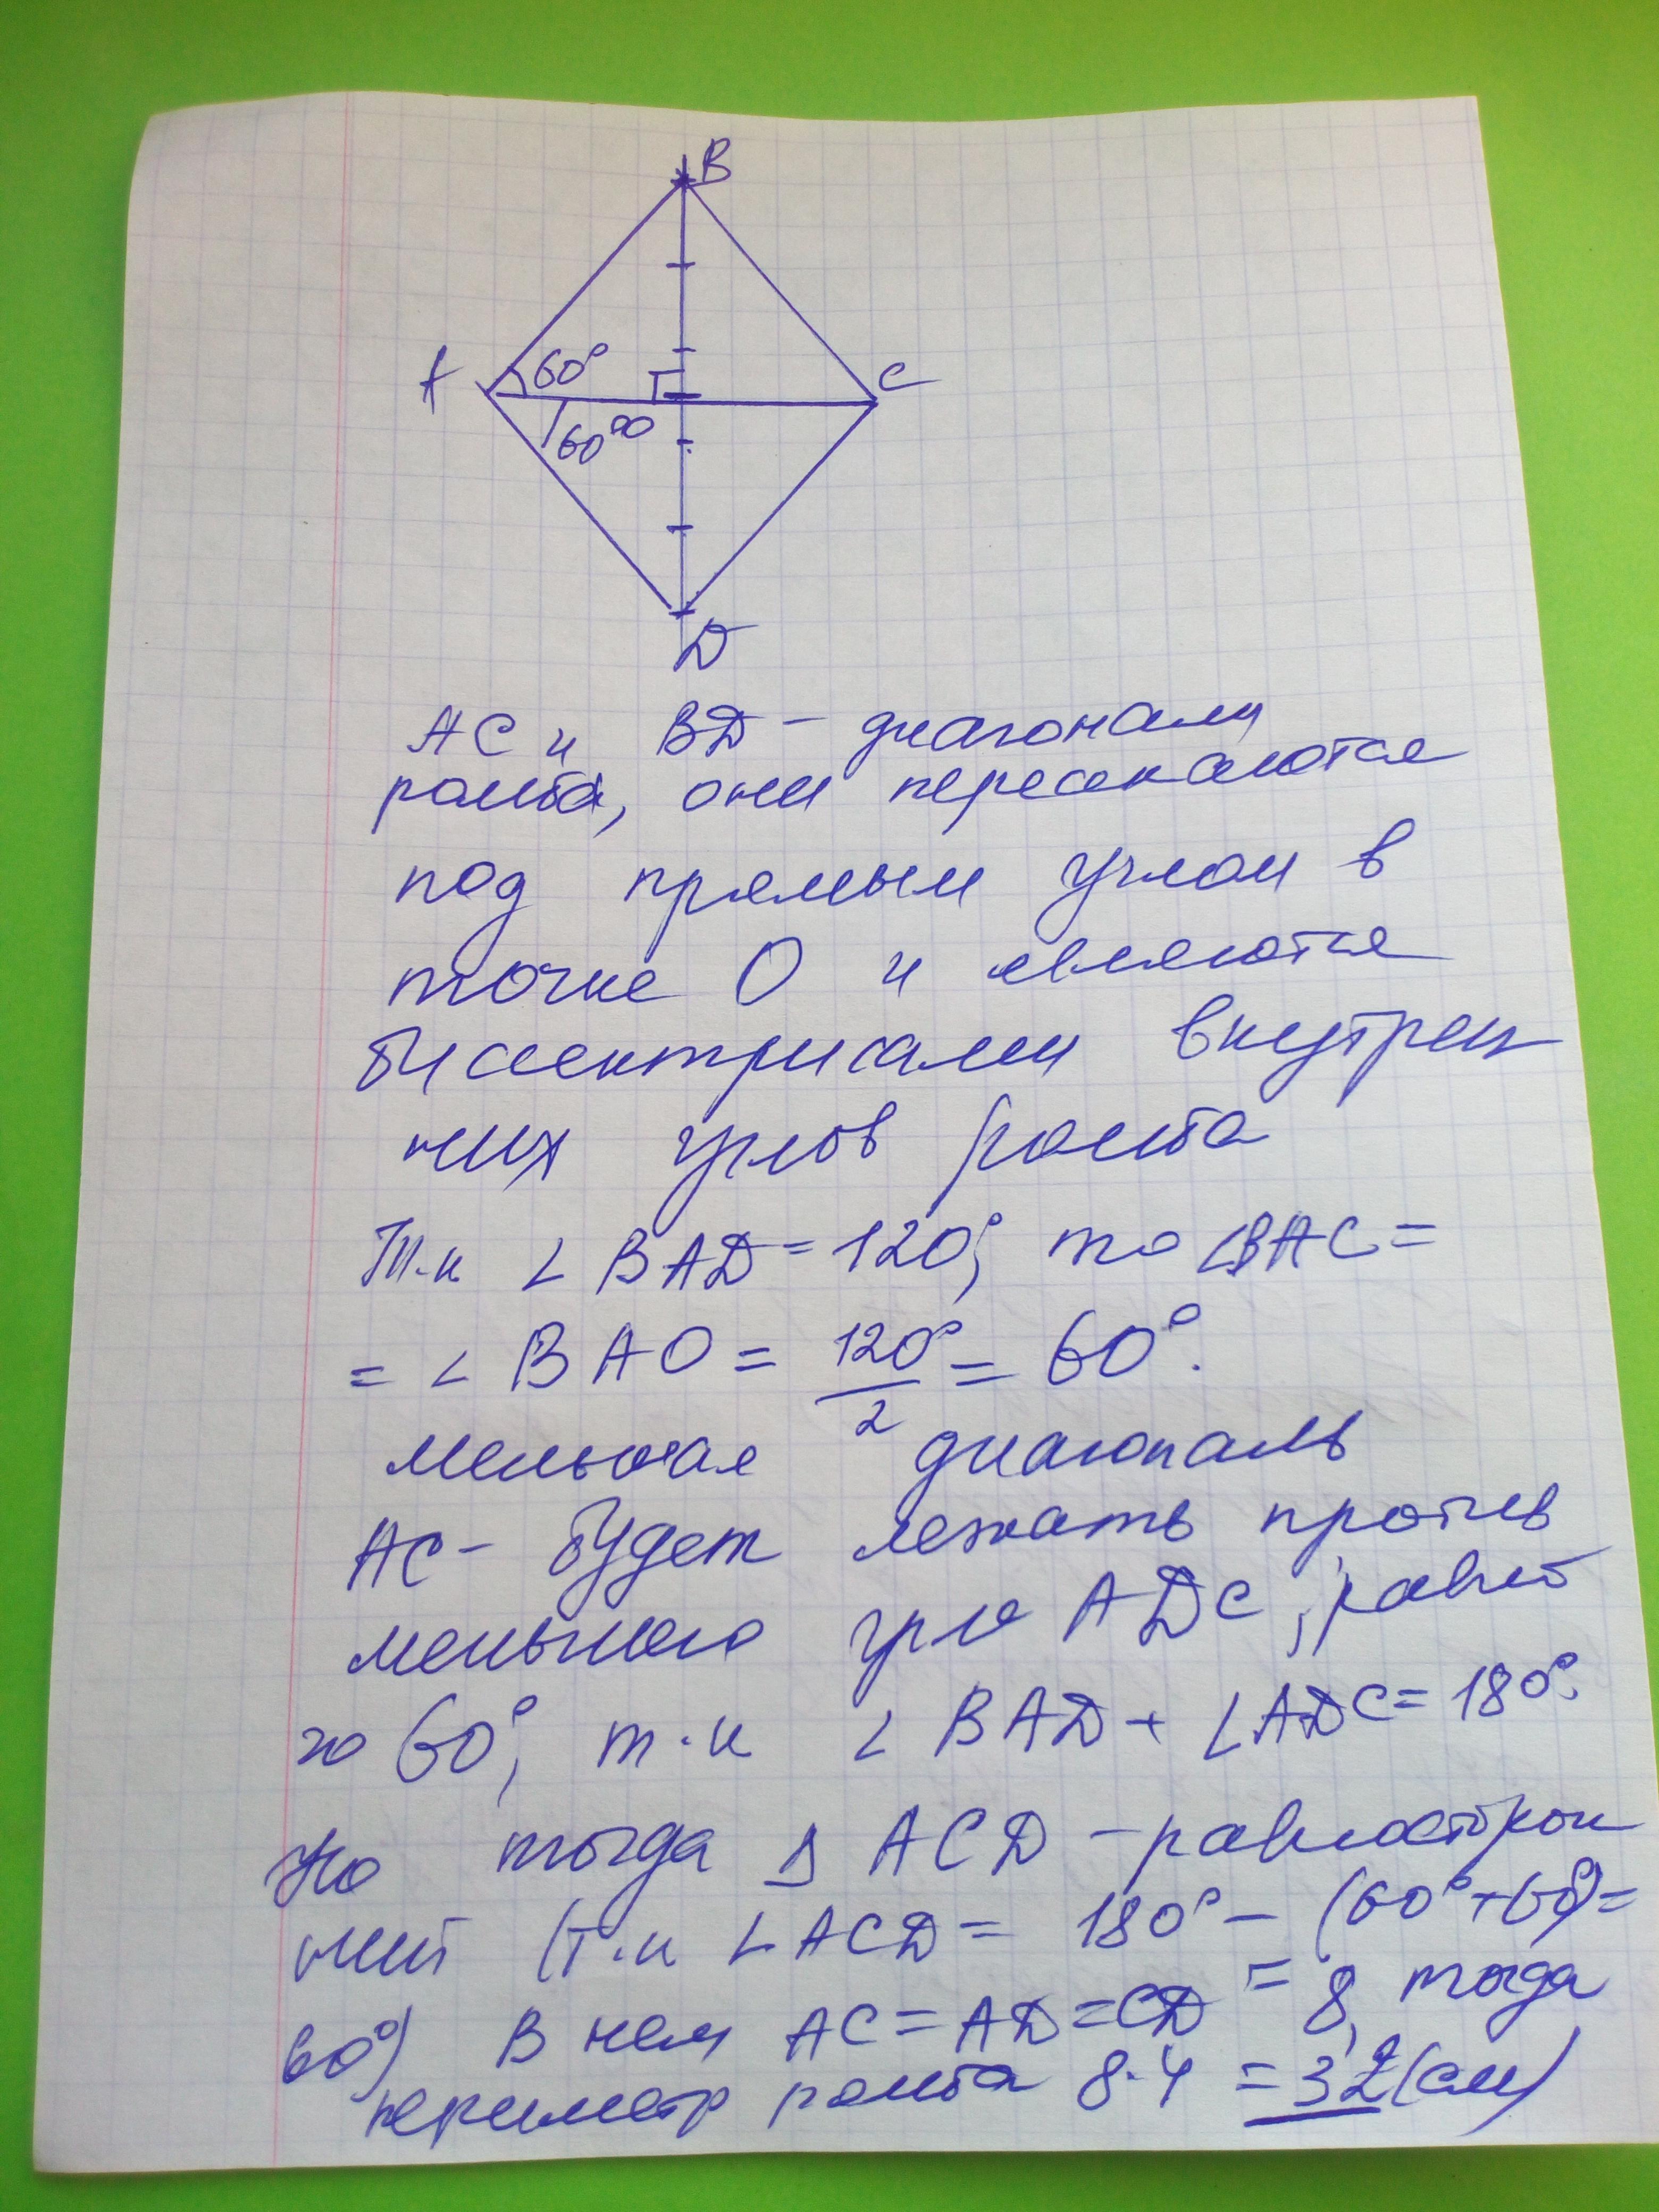 B
A
60°
C
60°
D
AC и BD – диагонали
ромба, они пересекаются
под прямым углом в
точке O и являются
биссектрисами внутрен
них углов ромба
Т.к ∠BAD = 120°, то ∠BAC =
= ∠BAO = 120°/2 = 60°.
меньшая диагональ
AC – будет лежать против
меньшего угла ADC, равно
го 60°, т.к ∠BAD + ∠ADC = 180°.
Но тогда Δ ACD – равносторон
ний (т.к ∠ACD = 180° – (60° + 60°) =
60°) В нем AC = AD = CD = 8, тогда
периметр ромба 8·4 = 32 (см)